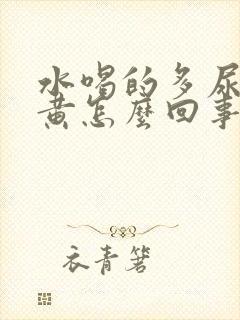 水喝的多尿
黄怎麼回事
衣青箬